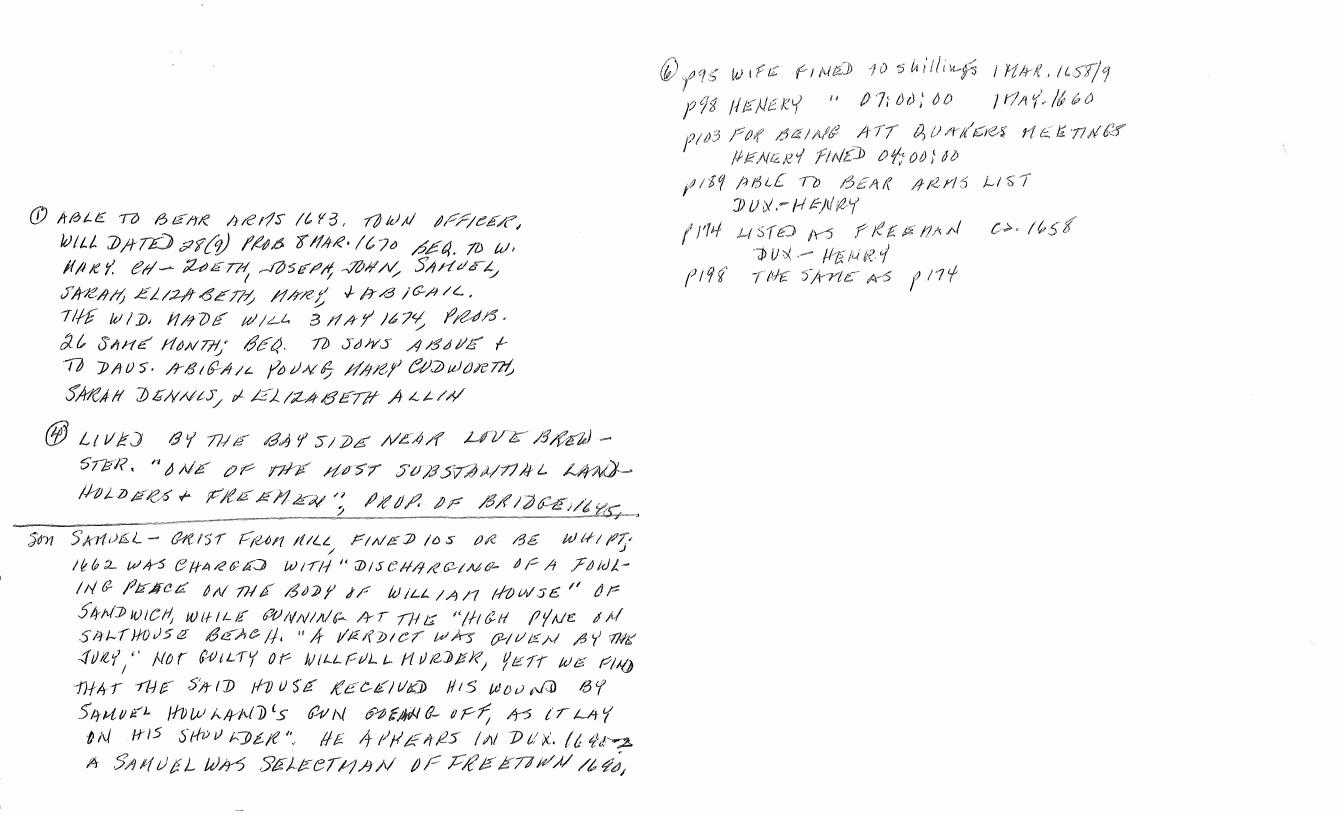 ① ABLE TO BEAR ARMS 1643. TOWN OFFICER.
WILL DATED 28(9) PROB 8 MAR. 1670 BEQ. TO W.
MARY. CH — ZOETH, JOSEPH, JOHN, SAMUEL,
SARAH, ELIZABETH, MARY, + ABIGAIL.
THE WID. MADE WILL 3 MAY 1674, PROB.
26 SAME MONTH; BEQ. TO SONS ABOVE +
TO DAUS. ABIGAIL YOUNG, MARY CUDWORTH,
SARAH DENNIS, + ELIZABETH ALLIN
④ LIVED BY THE BAYSIDE NEAR LOVE BREW-
STER. "ONE OF THE MOST SUBSTANTIAL LAND-
HOLDERS + FREEMEN"; PROP. OF BRIDGE. 1645.
Son SAMUEL — GRIST FROM MILL, FINED 10S OR BE WHIPT;
1662 WAS CHARGED WITH "DISCHARGING OF A FOWL-
ING PEACE ON THE BODY OF WILLIAM HOWSE" OF
SANDWICH, WHILE GUNNING AT THE "HIGH PYNE ON
SALTHOUSE BEACH. "A VERDICT WAS GIVEN BY THE
JURY, "NOT GUILTY OF WILLFULL MURDER, YETT WE FIND
THAT THE SAID HOUSE RECEIVED HIS WOUND BY
SAMUEL HOWLAND'S GUN GOEING OFF, AS IT LAY
ON HIS SHOULDER". HE APPEARS IN DUX.
A SAMUEL WAS SELECTMAN OF FREETOWN 1690,
⑥ p95 WIFE FINED 10 shillings 1 MAR. 1658/9
p98 HENERY " 07:00:00 1 MAY. 1660
p103 FOR BEING ATT QUAKERS MEETINGS
HENERY FINED 04:00:00
p189 ABLE TO BEAR ARMS LIST
DUX.-HENRY
p174 LISTED AS FREEMAN Ca. 1658
DUX — HENRY
p198 THE SAME AS p174